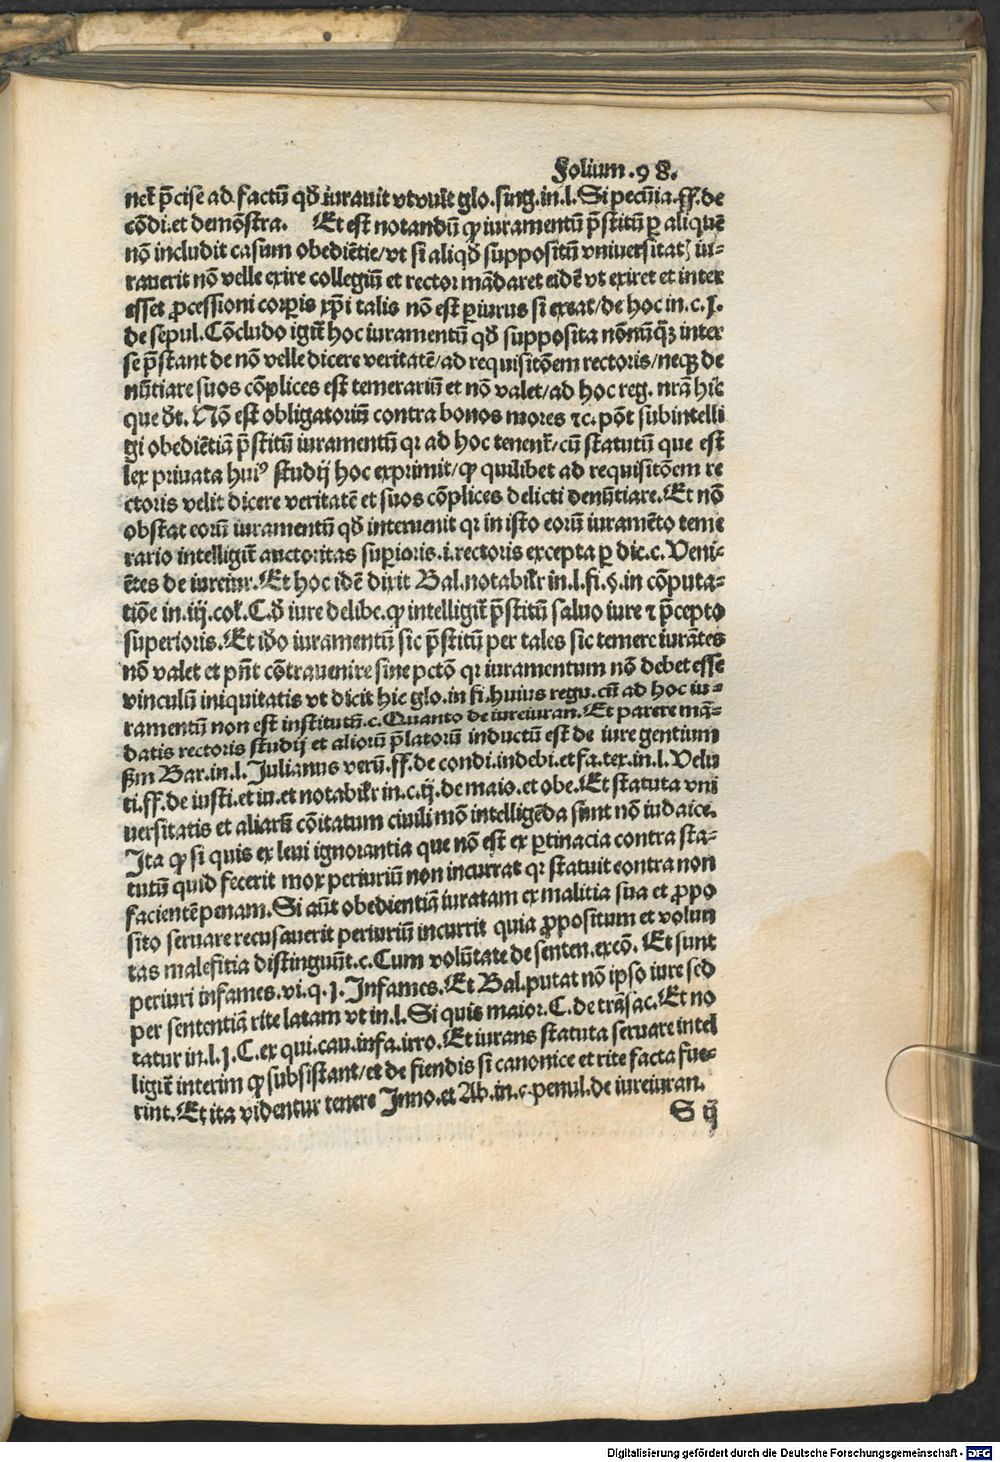 Folium .98.
net̄ p̄cise ad factū qd̄ iurauit vt vult glo. sing. in. l. Si pecūia. ff. de
cōdi. et demōstra. Et est notandū ꝙ iuramentū p̄stitū ꝑ aliquē
nō includit casum obediētie/ vt si aliqd̄ suppositū vniuersitatꝭ iu-
rauerit nō velle exire collegiū et rector mādaret eidē vt exiret et inter
esset ꝓcessioni corꝑis xp̄i talis nō est ꝑiurus si exeat/ de hoc in. c. J.
de sepul. Cōcludo igit̄ hoc iuramentū qd̄ supposita nōnūqꝫ inter
se p̄stant de nō velle dicere veritatē/ ad requisitōem rectoris/ neqꝫ de
nūtiare suos cōplices est temerariū et nō valet/ ad hoc reg. nr̄a hic
que d̄t. Nō est obligatoriū contra bonos mores ⁊c. pōt subintelli
gi obediētiā p̄stitū iuramentū qꝛ ad hoc tenent̄/ cū statutū que est
lex priuata huiꝰ studij hoc exprimit/ ꝙ quilibet ad requisitōem re
ctoris velit dicere veritatē et suos cōplices delicti denūtiare. Et nō
obstat eorū iuramentū qd̄ interuenit qꝛ in isto eorū iuramēto teme
rario intelligit̄ auctoritas suꝑioris. i. rectoris excepta ꝑ dic. c. Veni-
ētes de iureiur. Et hoc idē dixit Bal. notabilr̄ in. l. fi. §. in cōputa-
tiōe in. iij. col. C. d̄ iure delibe. ꝙ intelligit̄ p̄stitū saluo iure ⁊ p̄cepto
superioris. Et id̄o iuramentū sic p̄stitū per tales sic temere iurātes
nō valet et pn̄t cōtrauenire sine pctō qꝛ iuramentum nō debet esse
vinculū iniquitatis vt dicit hic glo. in fi. huius regu. cū ad hoc iu-
ramentū non est institutū. c. Quanto de iureiuran. Et parere mā-
datis rectoris studij et aliorū p̄latorū inductū est de iure gentium
ẜm Bar. in. l. Julianus verū. ff. de condi. indebi. et fa. tex. in. l. Velu
ti. ff. de iusti. et iu. et notabilr̄ in. c. ij. de maio. et obe. Et statuta vni
uersitatis et aliarū cōitatum ciuili mō intelligēda sunt nō iudaice.
Ita ꝙ si quis ex leui ignorantia que nō est ex ꝑtinacia contra sta-
tutū quid fecerit mox periuriū non incurrat qꝛ statuit contra non
facientē penam. Si aūt obedientiā iuratam ex malitia sua et ꝓpo
sito seruare recusauerit periuriū incurrit quia ꝓpositum et volun
tas malefitia distingūnt. c. Cum volūtate de senten. excō. Et sunt
periuri infames. vi. q. J. Infames. Et Bal. putat nō ipso iure sed
per sententiā rite latam vt in. l. Si quis maior. C. de trāsac. Et no
tatur in. l. J. C. ex qui. cau. infa. irro. Et iurans statuta seruare intel
ligit̄ interim ꝙ subsistant/ et de fiendis si canonice et rite facta fue-
rint. Et ita videntur tenere Inno. et Ab. in. c. penul. de iureiuran.
S ij
Digitalisierung gefördert durch die Deutsche Forschungsgemeinschaft - DFG